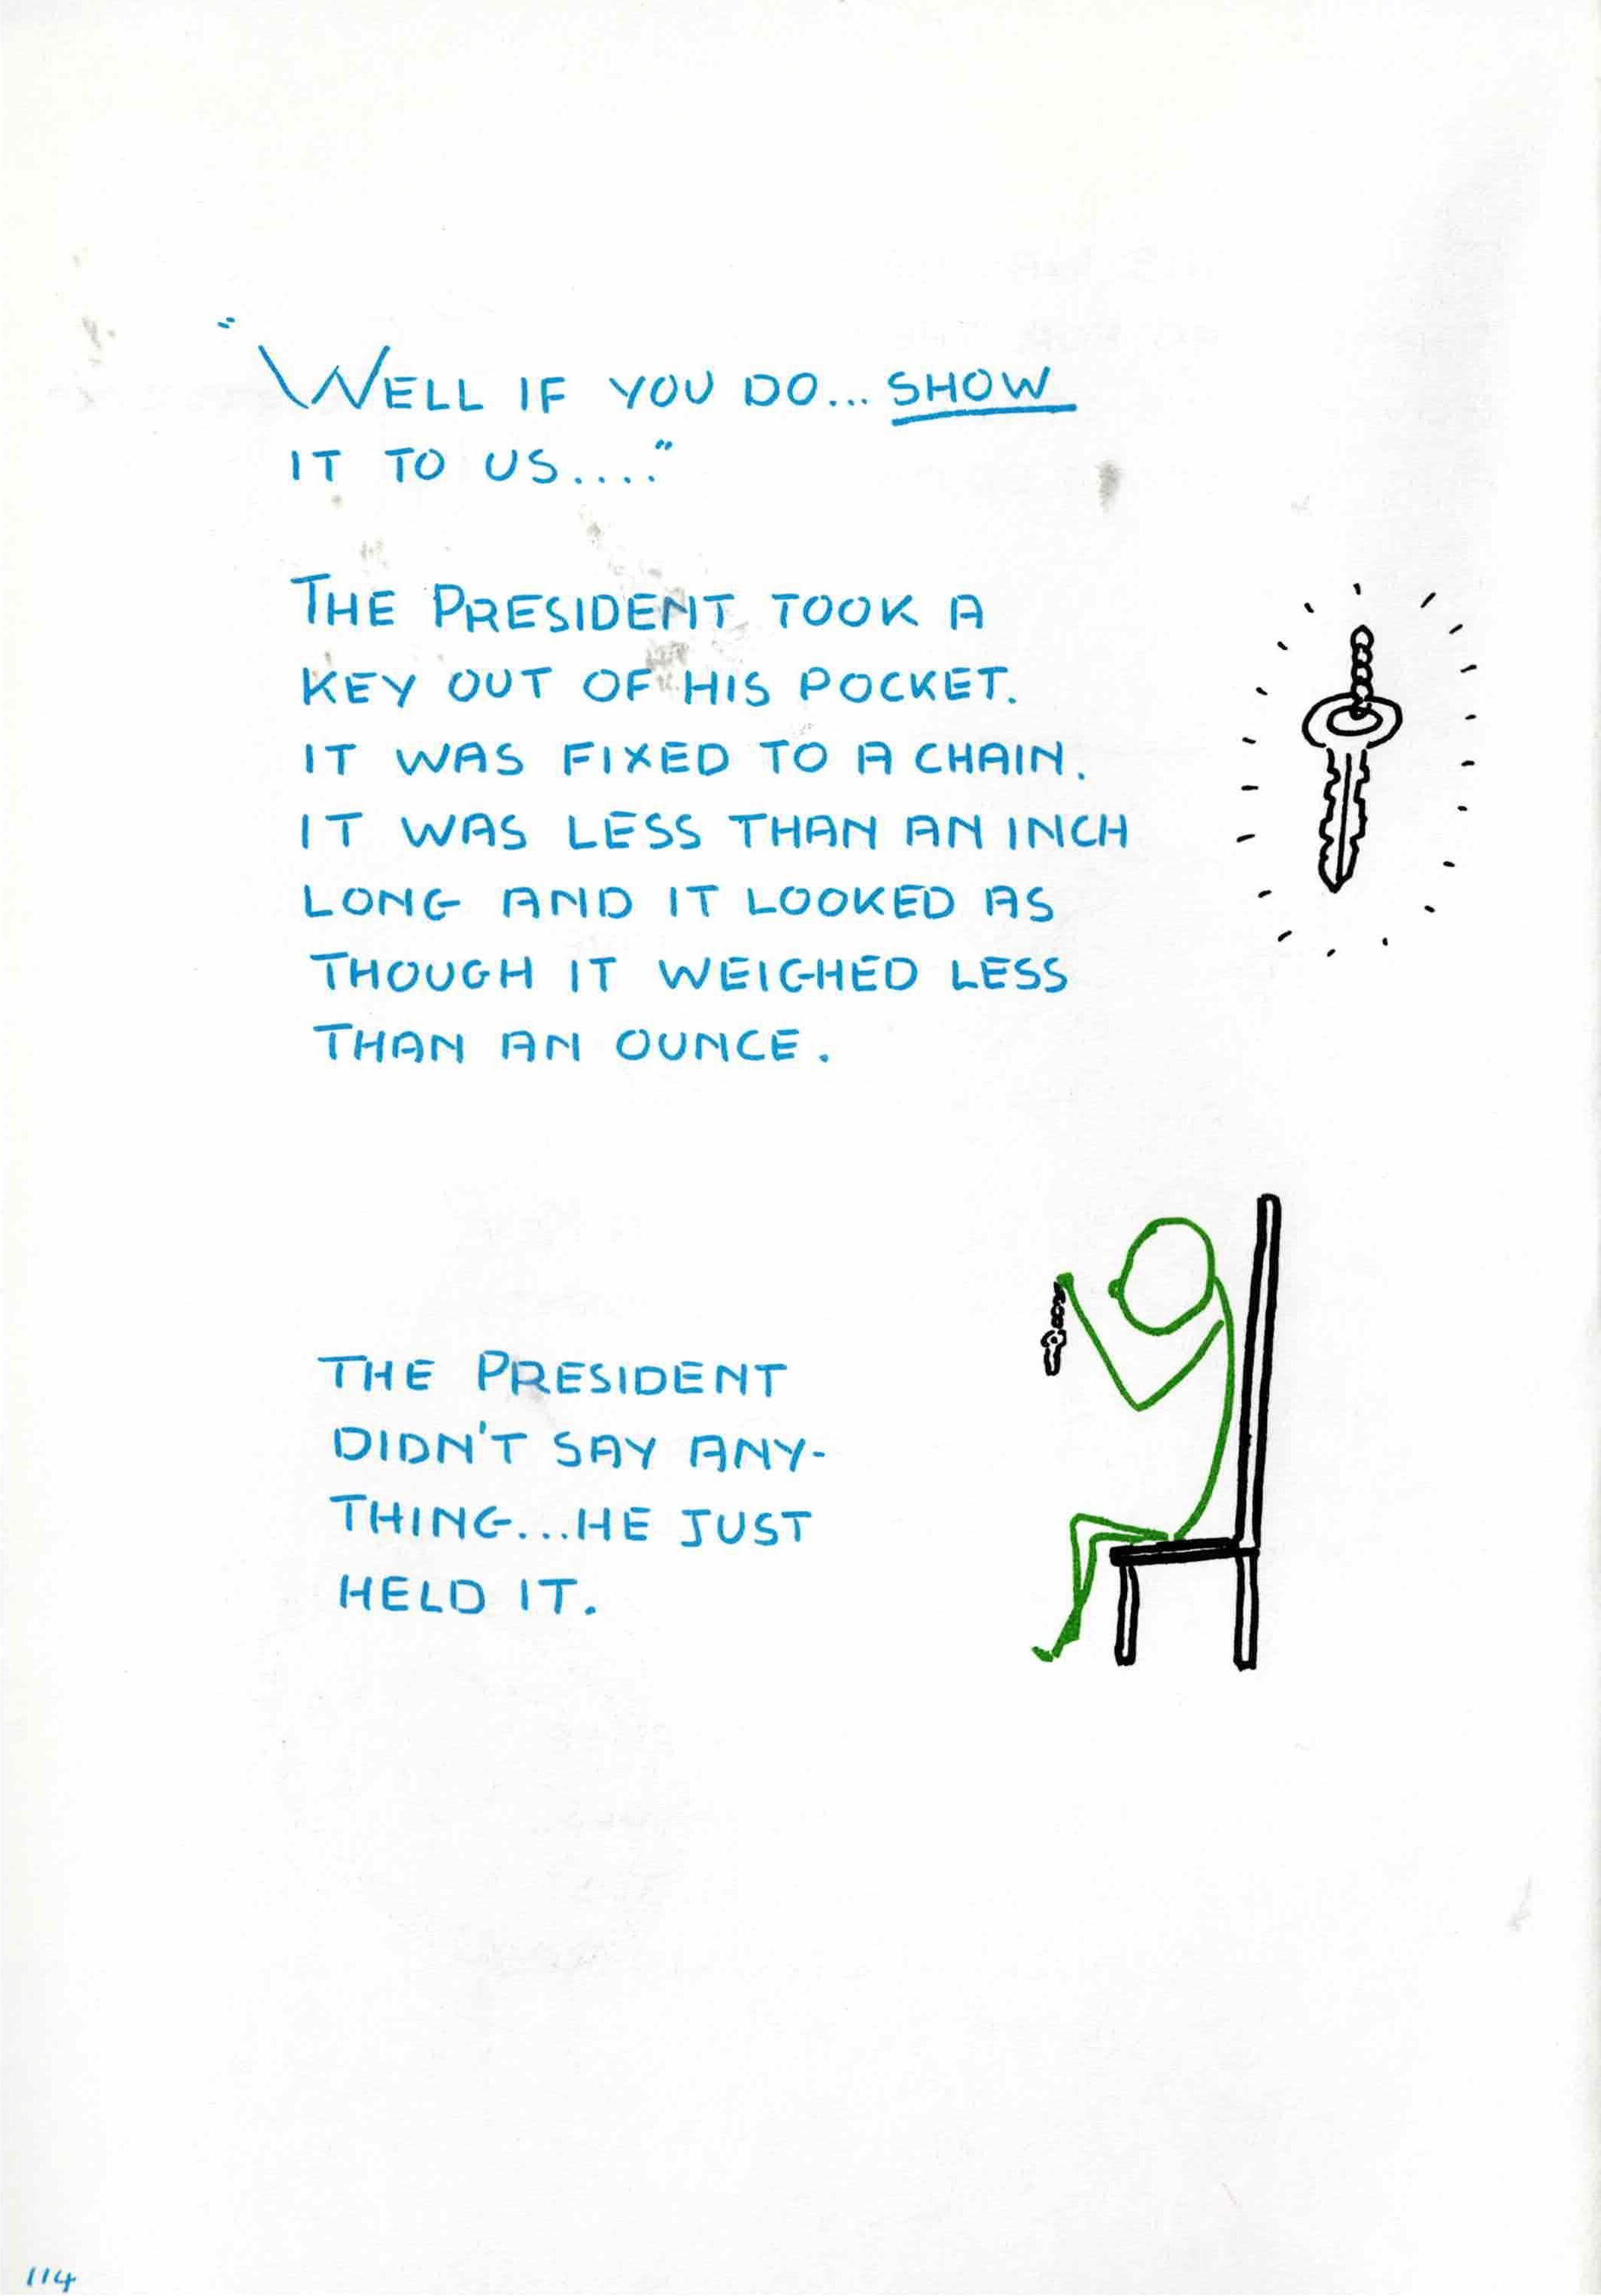 "WELL IF YOU DO... SHOW
IT TO US...."
THE PRESIDENT TOOK A
KEY OUT OF HIS POCKET.
IT WAS FIXED TO A CHAIN.
IT WAS LESS THAN AN INCH
LONG AND IT LOOKED AS
THOUGH IT WEIGHED LESS
THAN AN OUNCE.
THE PRESIDENT
DIDN'T SAY ANY-
THING...HE JUST
HELD IT.
114